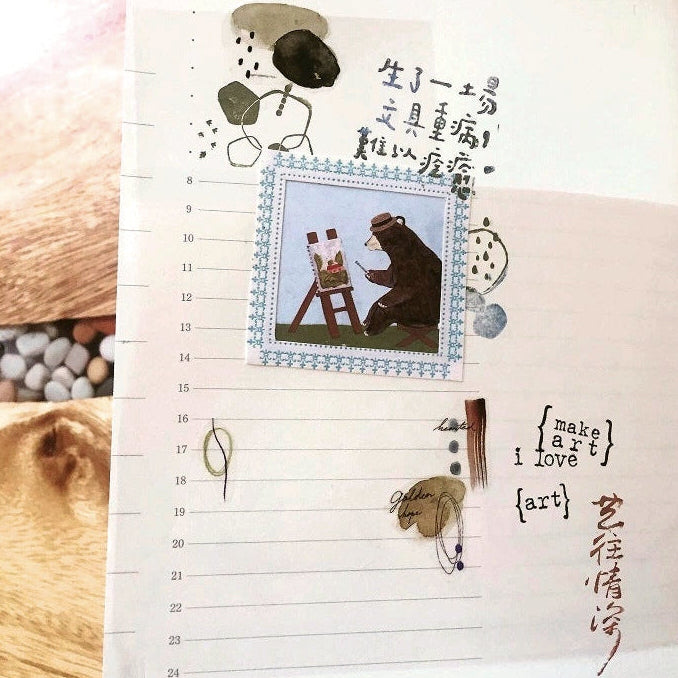 生了一場
文具重病，
難以痊癒。
8
9
10
11
12
13
14
15
16
17
18
19
20
21
22
23
24
golden
hope
{make
art}
i love
{art}
艺往情深